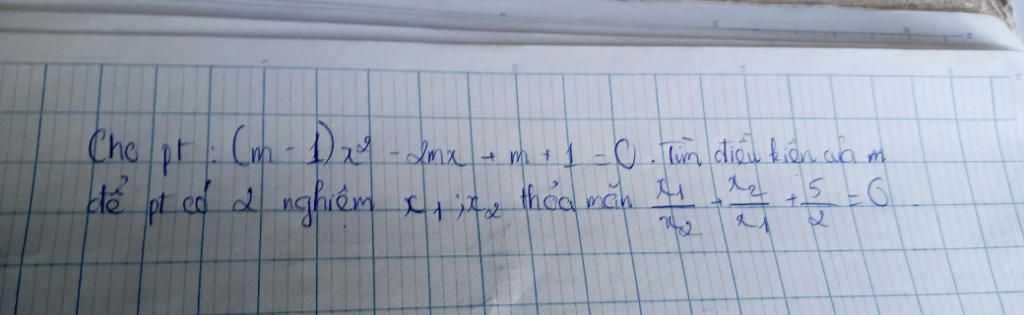 Cho pt : (m - 1)x² - 2mx + m + 1 = 0. Tìm điều kiện của m
để pt có 2 nghiệm x₁ ; x₂ thỏa mãn x₁/x₂ + x₂/x₁ + 5/2 = 0